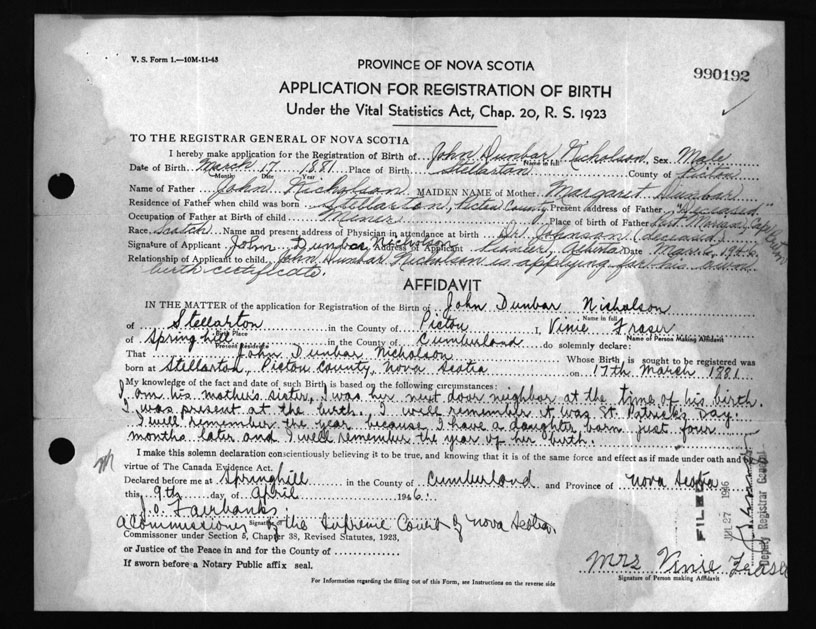 V. S. Form 1.—10M-11-43
PROVINCE OF NOVA SCOTIA
990192
APPLICATION FOR REGISTRATION OF BIRTH
Under the Vital Statistics Act, Chap. 20, R. S. 1923
TO THE REGISTRAR GENERAL OF NOVA SCOTIA
I hereby make application for the Registration of Birth of John Dunbar Nicholson, Sex Male
Name in full
Date of Birth March 17 1881 Place of Birth Stellarton County of Pictou
Month Date Year
Name of Father John Nicholson MAIDEN NAME of Mother Margaret Dunbar
Residence of Father when child was born Stellarton, Pictou County, Present address of Father "Deceased"
Occupation of Father at Birth of child Miner Place of Birth of Father Cape Breton
Race Scotch Name and present address of Physician in attendance at birth Dr. Johnson (deceased)
Signature of Applicant John Dunbar Nicholson Address of Applicant Alberta Date 1946
Relationship of Applicant to child John Dunbar Nicholson is applying for his own
birth certificate.
AFFIDAVIT
IN THE MATTER of the application for Registration of the Birth of John Dunbar Nicholson
Name in full
of Stellarton in the County of Pictou I, Vinie Fraser
Birth Place
Name of Person Making Affidavit
of Springhill in the County of Cumberland do solemnly declare:
Present Residence
That John Dunbar Nicholson Whose Birth is sought to be registered was
born at Stellarton, Pictou County, Nova Scotia on 17th March 1881
My knowledge of the fact and date of such Birth is based on the following circumstances:
I am his mother's sister, I was her next door neighbor at the time of his birth.
I was present at the birth. I well remember it was St. Patrick's Day.
I well remember the year because I have a daughter born just four
months later and I well remember the year of her birth.
I make this solemn declaration conscientiously believing it to be true, and knowing that it is of the same force and effect as if made under oath and by
virtue of The Canada Evidence Act.
Declared before me at Springhill in the County of Cumberland and Province of Nova Scotia
this 9th day of April 1946.
J. O. Fairbanks
A Commissioner of the Supreme Court of Nova Scotia.
Signature of
Commissioner under Section 5, Chapter 38, Revised Statutes, 1923,
or Justice of the Peace in and for the County of
If sworn before a Notary Public affix seal.
Mrs Vinie Fraser
Signature of Person making Affidavit
For Information regarding the filling out of this Form, see Instructions on the reverse side
FILED
JUL 27 1946
Deputy Registrar General